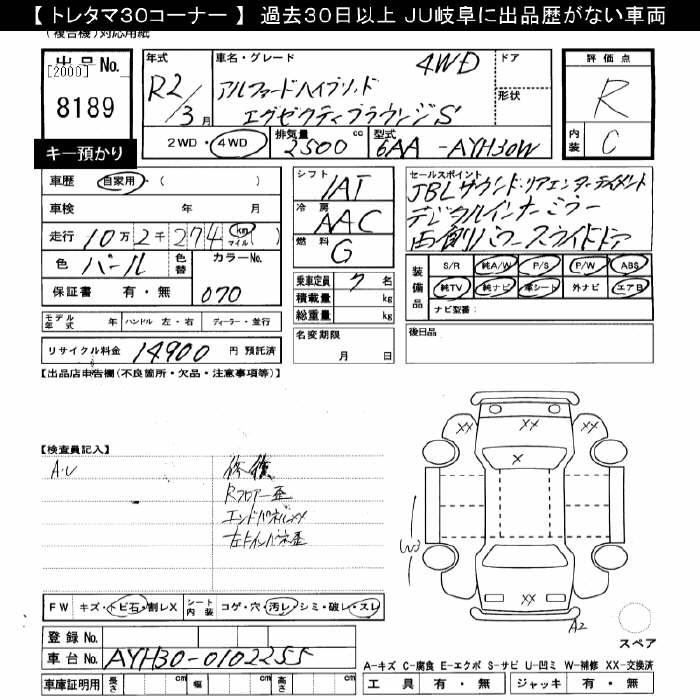 【 トレタマ30コーナー 】 過去30日以上 JU岐阜に出品歴がない車両
(複合機)対応用紙
出品No.
[2000]
8189
キー預かり
年式
R2/3月
車名・グレード
4WD
アルファードハイブリッド
エグゼクティブラウンジS
ドア
形状
2WD・4WD
排気量
2500 cc
型式
6AA-AYH30W
評価点
R
内装
C
車歴 自家用・( )
車検 年 月
走行 10万2千274 km マイル ( )
色 パール
色替
カラーNo.
070
保証書 有・無
モデル年式 年 ハンドル 左・右 ディーラー・並行
リサイクル料金 14900 円 預託済
シフト
IAT
冷房
AAC
燃料
G
乗車定員 7 名
積載量 kg
総重量 kg
名変期限
月 日
セールスポイント
JBLサウンド・リアエンターテイメント
デジタルインナーミラー
両側パワースライドドア
装備品
S/R 純A/W P/S P/W ABS
純TV 純ナビ 革シート 外ナビ エアB
ナビ型番:
後日品
【出品店申告欄(不良箇所・欠品・注意事項等)】
【検査員記入】
A.U
修復
Rフロアー歪
エンドパネルXX
左インパネ歪
XX XX XX
X
W
XX
A2
スペア
FW キズ・トビ石・割レX
シート内装 コゲ・穴・汚レ・シミ・破レ・スレ
登録No.
車台No. AYH30-0102255
車庫証明用 長さ cm 幅 cm 高さ cm
A-キズ C-腐食 E-エクボ S-サビ U-凹ミ W-補修 XX-交換済
工具 有・無 ジャッキ 有・無